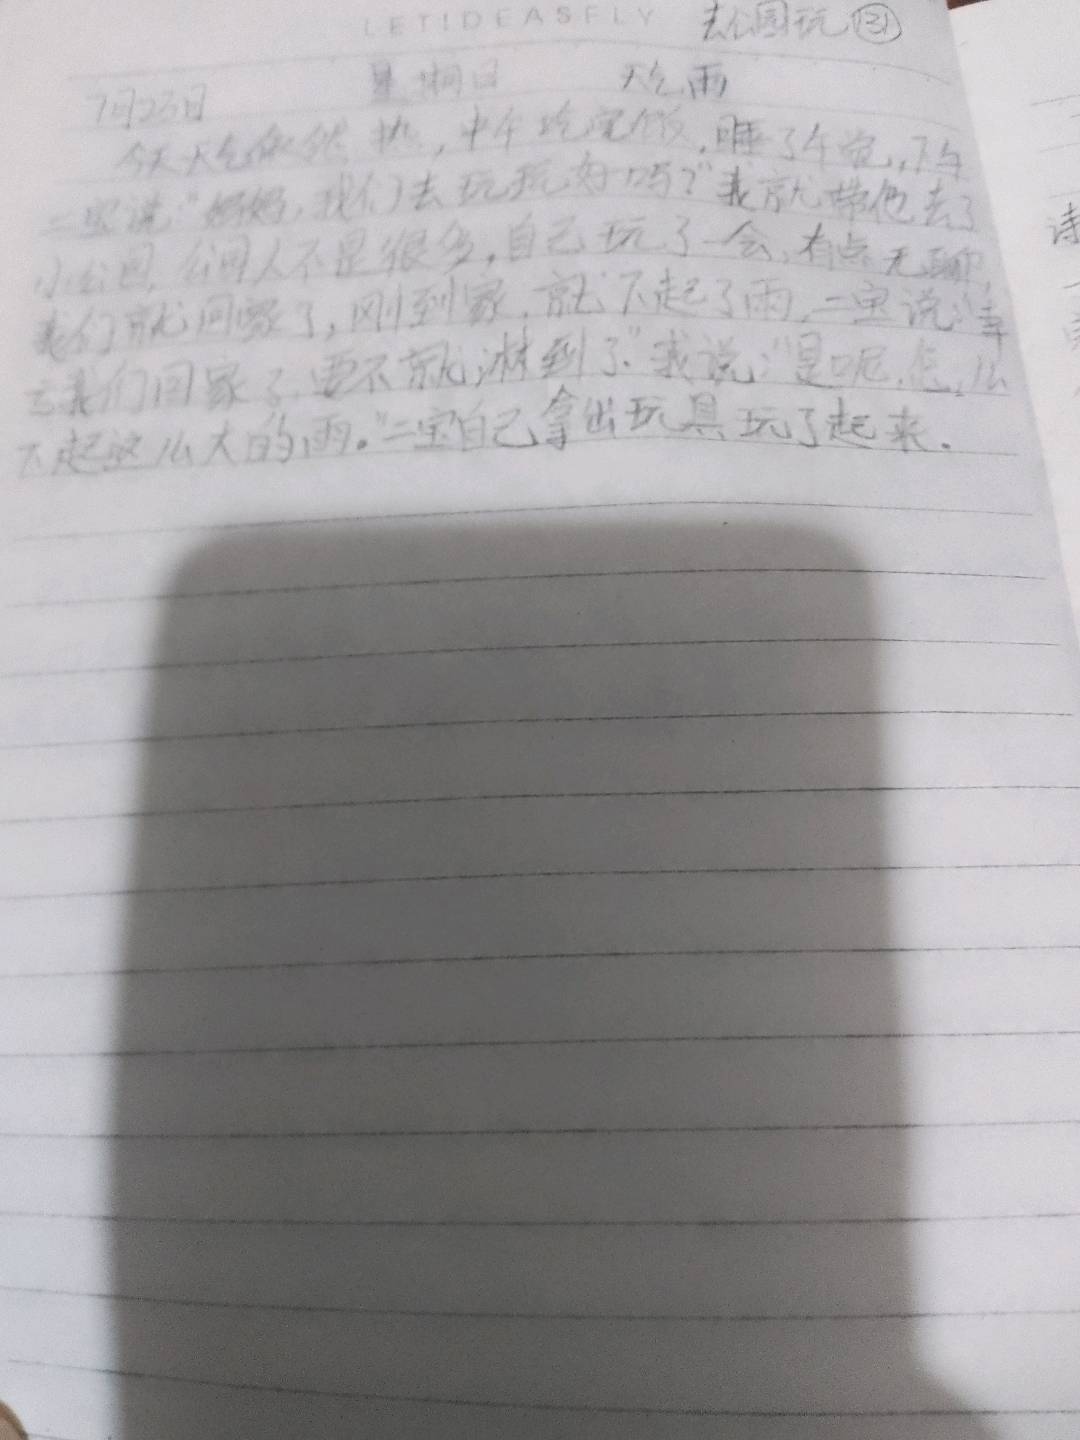 LETIDEASFLY 去公园玩 31
7月23日 星期日 天气雨
今天天气依然热,中午吃完饭,睡了午觉,下午
二宝说:"妈妈,我们去玩玩好吗?"我就带他去了
小公园,公园人不是很多,自己玩了一会,有点无聊,
我们就回家了,刚到家,就下起了雨,二宝说:"幸
亏我们回家了,要不就淋到了."我说:"是呢,怎么
下起这么大的雨。"二宝自己拿出玩具玩了起来.
诗